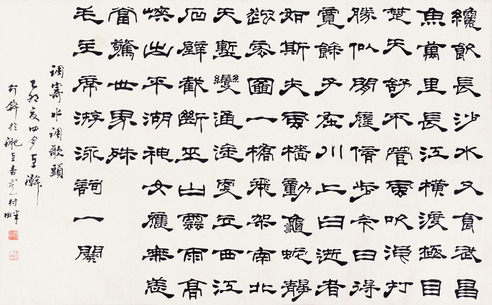 纔飲長沙水又食武昌
魚萬里長江橫渡極目
楚天舒不管風吹浪打
勝似閒庭信步今日得
寬餘子在川上曰逝者
如斯夫風檣動龜蛇靜
起宏圖一橋飛架南北
天塹變通途更立西江
石壁截斷巫山雲雨高
峽出平湖神女應無恙
當驚世界殊
毛主席游泳詞一闋
調寄水調歌頭
乙卯夏四月